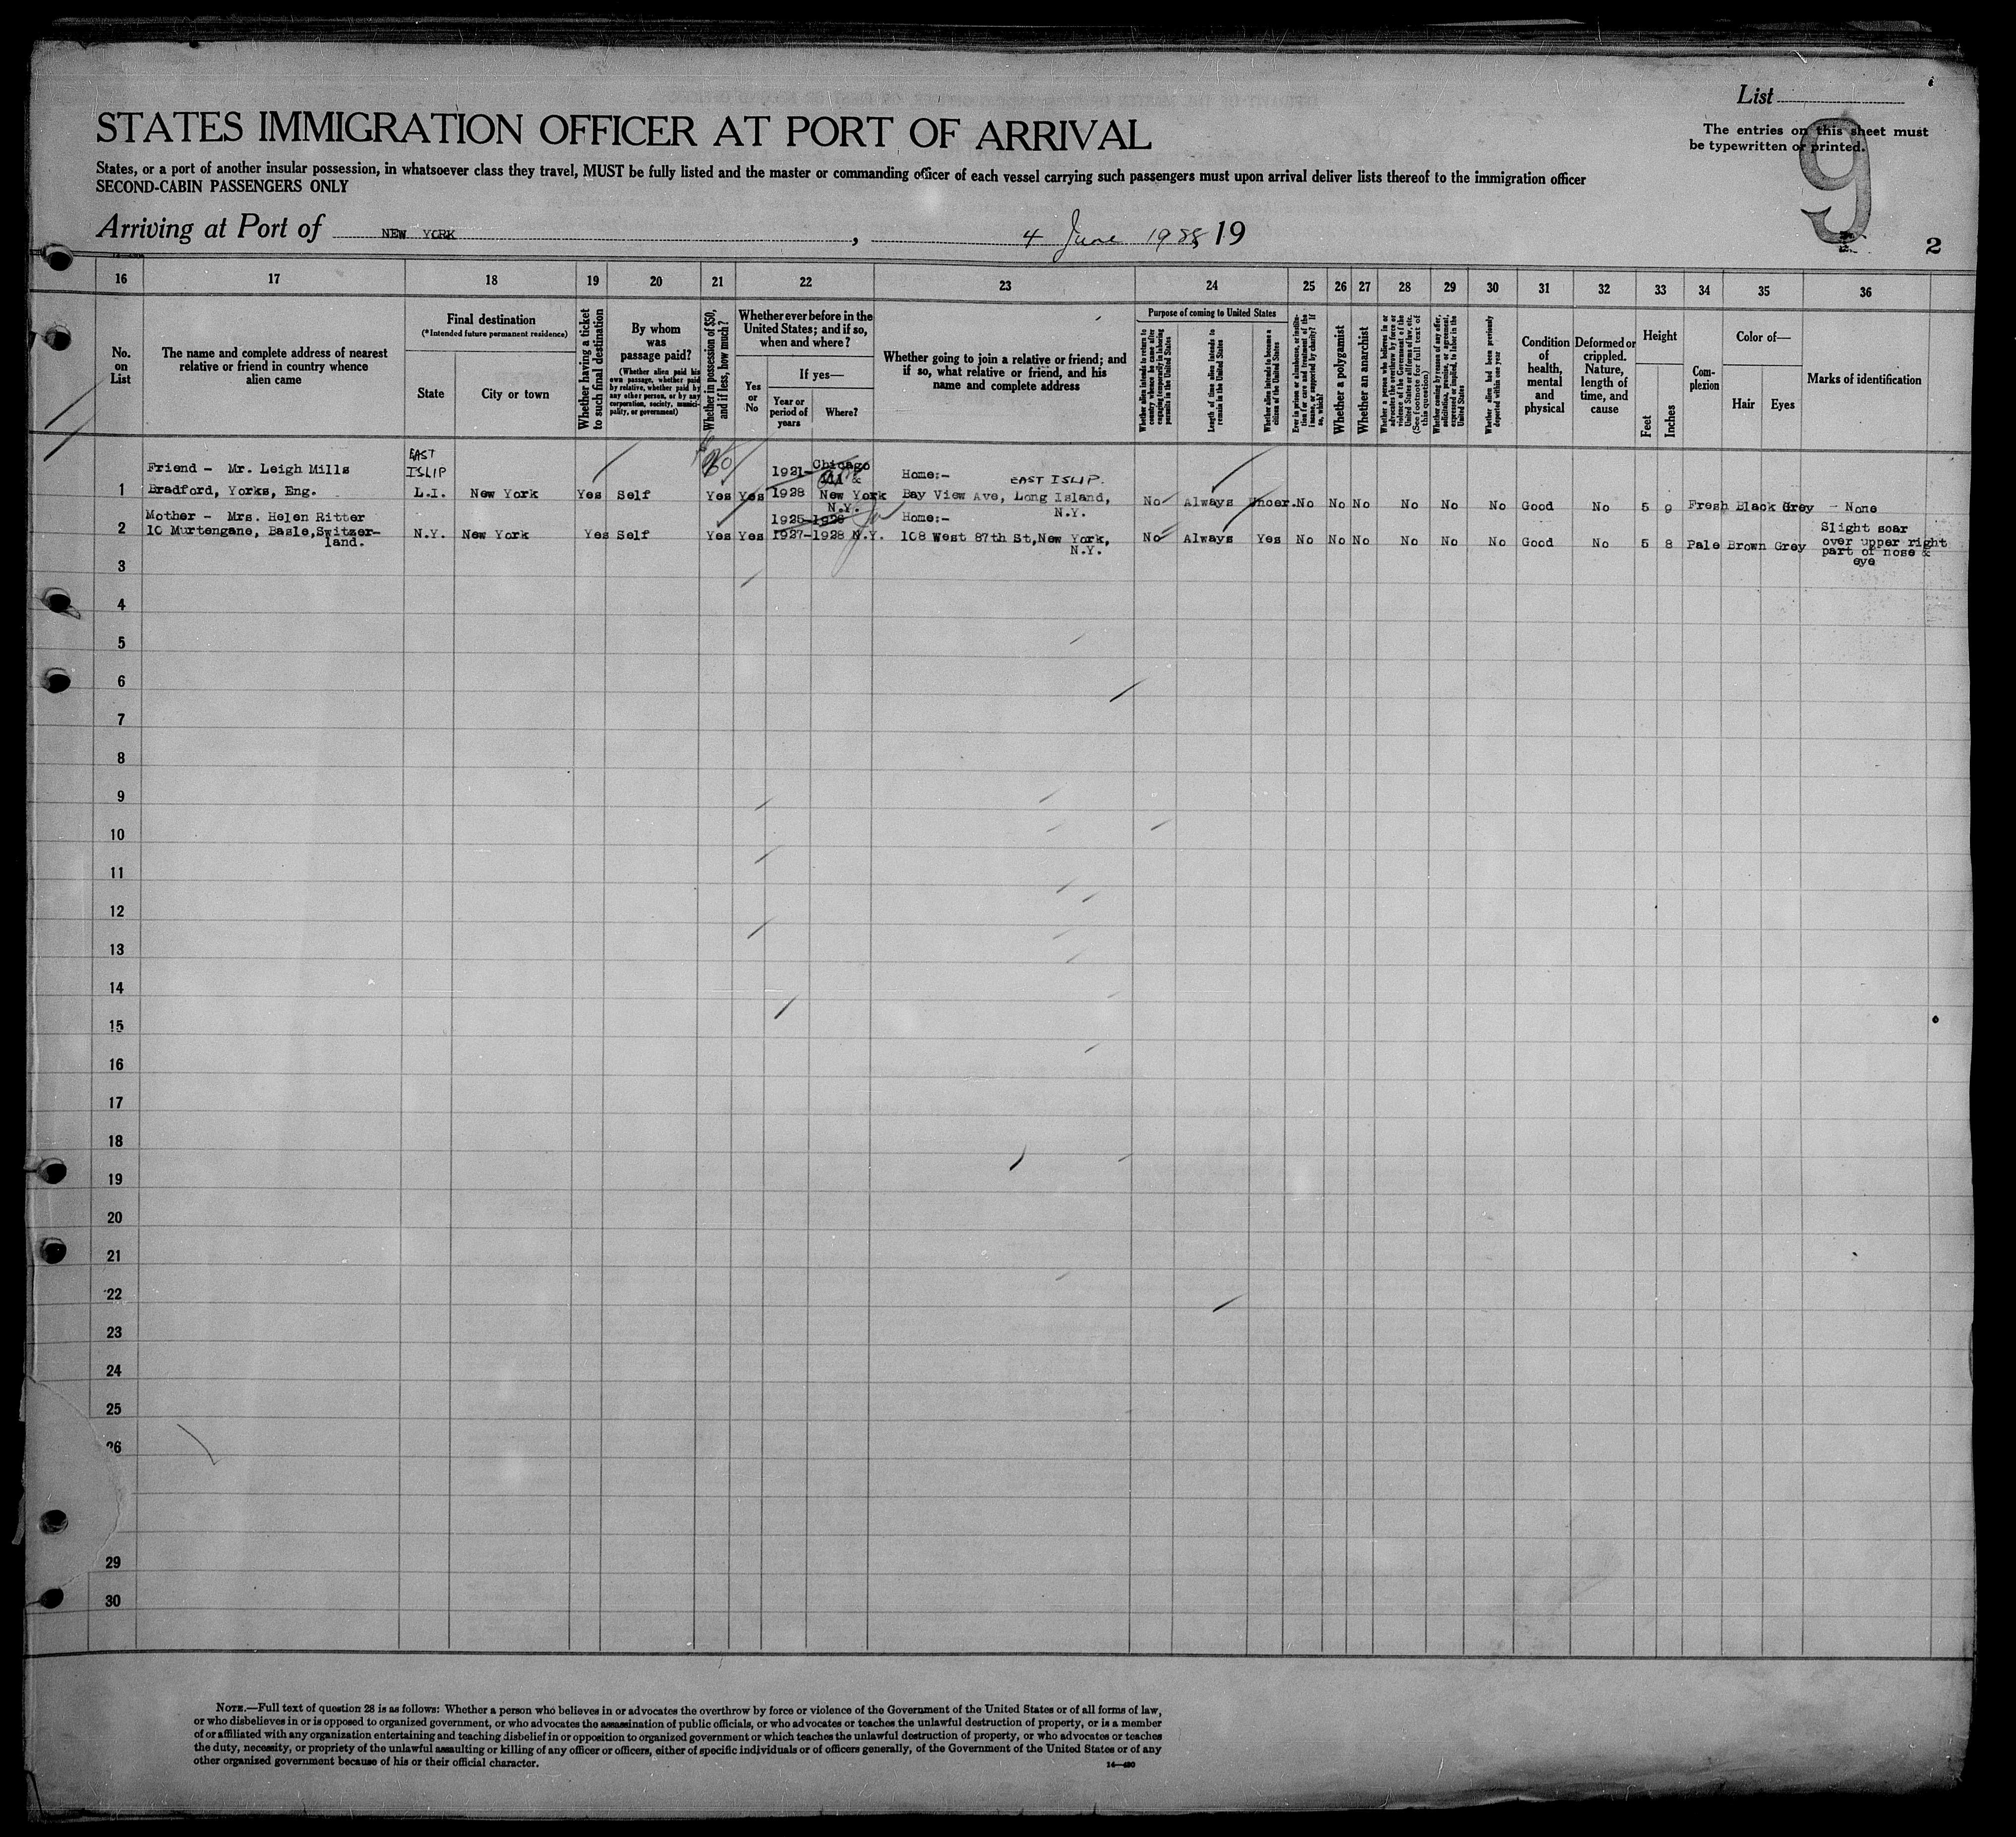 List
The entries on this sheet must
be typewritten or printed.
9
STATES IMMIGRATION OFFICER AT PORT OF ARRIVAL
States, or a port of another insular possession, in whatsoever class they travel, MUST be fully listed and the master or commanding officer of each vessel carrying such passengers must upon arrival deliver lists thereof to the immigration officer
SECOND-CABIN PASSENGERS ONLY
Arriving at Port of NEW YORK, 4 June 19
2
16 17 18 19 20 21 22 23 24 25 26 27 28 29 30 31 32 33 34 35 36
No.
on
List
The name and complete address of nearest
relative or friend in country whence
alien came
Final destination
(*Intended future permanent residence)
State
City or town
Whether having a ticket
to such final destination
By whom
was
passage paid?
(Whether alien paid his
own passage, whether paid
by relative, whether paid by
any other person, or by any
corporation, society, munici-
pality, or government)
Whether in possession of $50,
and if less, how much?
Whether ever before in the
United States; and if so,
when and where?
Yes
or
No
If yes—
Year or
period of
years
Where?
Whether going to join a relative or friend; and
if so, what relative or friend, and his
name and complete address
Purpose of coming to United States
Whether alien intends to return to
country whence he came after
engaging temporarily in laboring
pursuits in the United States
Length of time alien intends to
remain in the United States
Whether alien intends to become a
citizen of the United States
Ever in prison or almshouse, or institu-
tion for care and treatment of the
insane, or supported by charity? If
so, which?
Whether a polygamist
Whether an anarchist
Whether a person who believes in or
advocates the overthrow by force or
violence of the Government of the
United States or all forms of law, etc.
(See footnote for full text of
this question)
Whether coming by reason of any offer,
solicitation, promise, or agreement,
expressed or implied, to labor in the
United States
Whether alien had been previously
deported within one year
Condition
of
health,
mental
and
physical
Deformed or
crippled.
Nature,
length of
time, and
cause
Height
Feet
Inches
Com-
plexion
Color of—
Hair
Eyes
Marks of identification
EAST
Friend - Mr. Leigh Mills ISLIP 1921- Chicago Home:- EAST ISLIP.
1 Bradford, Yorks, Eng. L.I. New York Yes Self Yes Yes 1928 New York Bay View Ave, Long Island, No Always Uncer. No No No No No No Good No 5 9 Fresh Black Grey - None
N.Y. N.Y.
Mother - Mrs. Helen Ritter 1925-1926 Home:- Slight scar
2 10 Murtengane, Basle, Switzer- N.Y. New York Yes Self Yes Yes 1927-1928 N.Y. 108 West 87th St, New York, No Always Yes No No No No No No Good No 5 8 Pale Brown Grey over upper right
land. N.Y. part of nose &
eye
3
4
5
6
7
8
9
10
11
12
13
14
15
16
17
18
19
20
21
22
23
24
25
26
29
30
NOTE.—Full text of question 28 is as follows: Whether a person who believes in or advocates the overthrow by force or violence of the Government of the United States or of all forms of law,
or who disbelieves in or is opposed to organized government, or who advocates the assassination of public officials, or who advocates or teaches the unlawful destruction of property, or is a member
of or affiliated with any organization entertaining and teaching disbelief in or opposition to organized government or which teaches the unlawful destruction of property, or who advocates or teaches
the duty, necessity, or propriety of the unlawful assaulting or killing of any officer or officers, either of specific individuals or of officers generally, of the Government of the United States or of any
other organized government because of his or their official character.